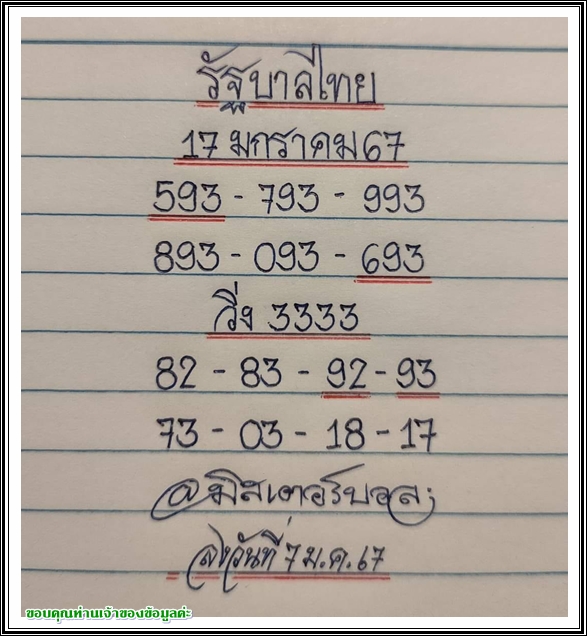 รัฐบาลไทย
17 มกราคม 67
593 - 793 - 993
893 - 093 - 693
วิ่ง 3333
82 - 83 - 92 - 93
73 - 03 - 18 - 17
@มิสเตอร์บอล
ลงวันที่ 7 ม.ค. 67
ขอบคุณท่านเจ้าของข้อมูลค่ะ